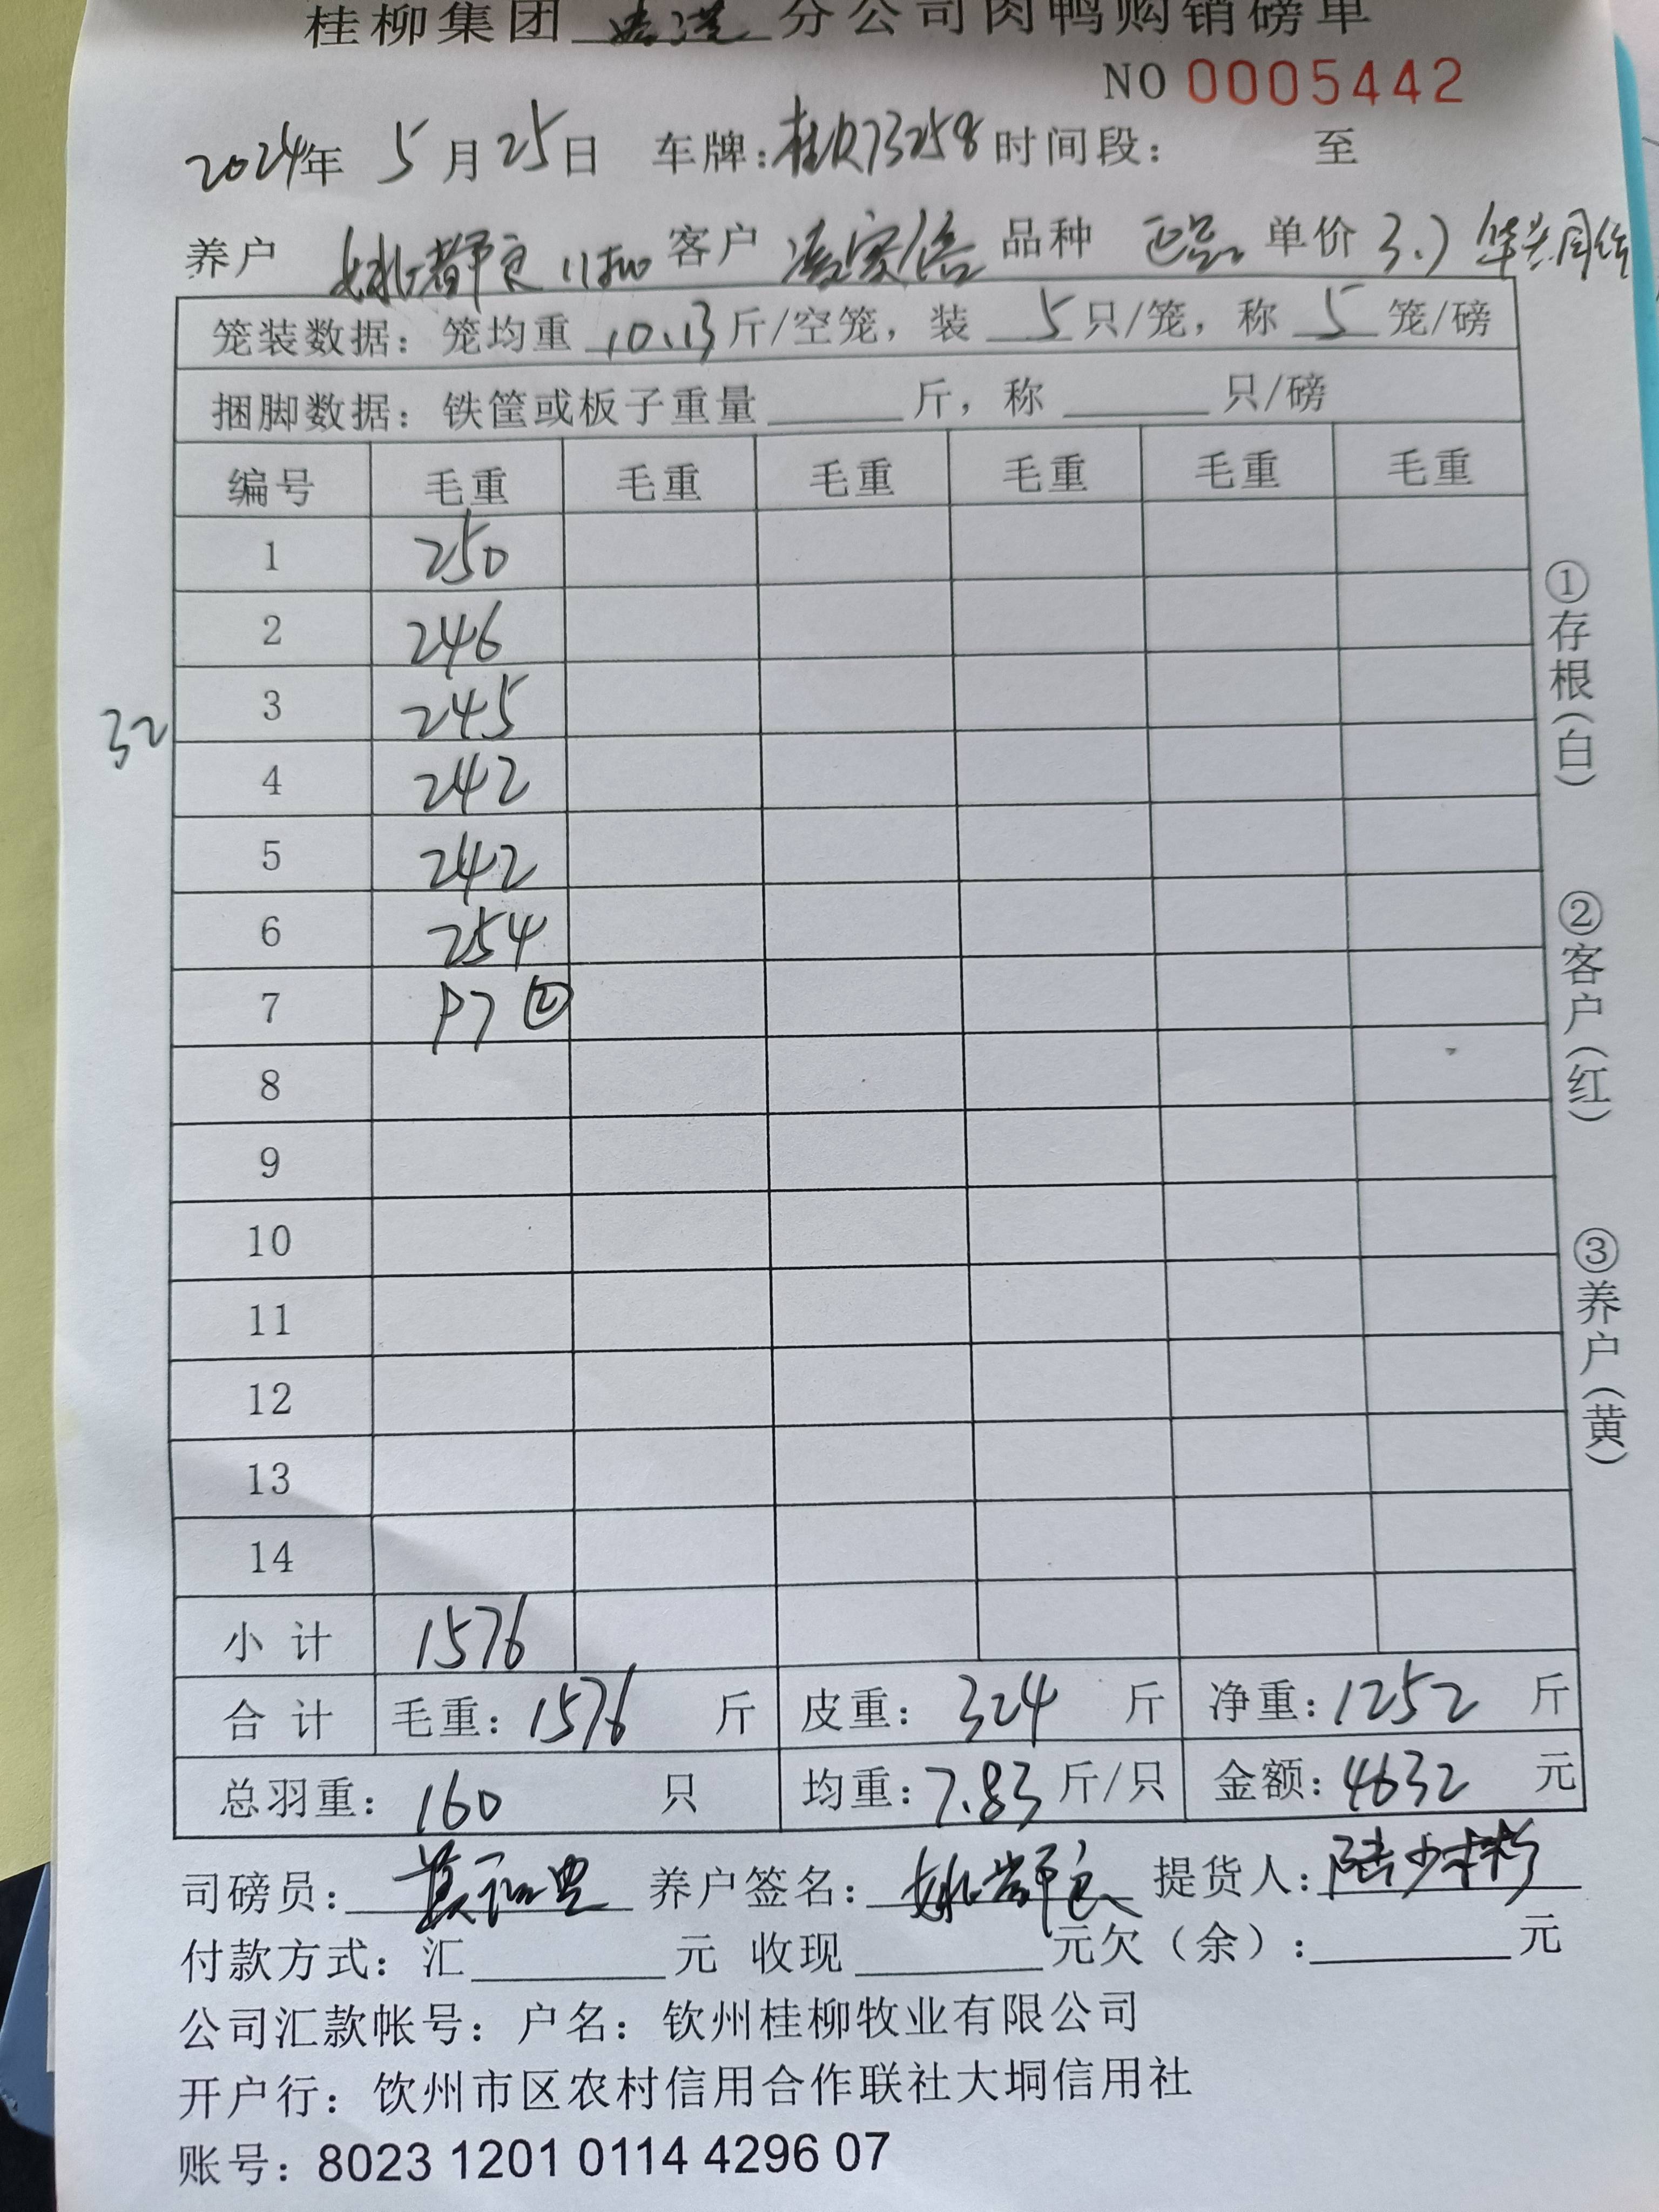 桂柳集团 贵港 分公司肉鸭购销磅单
NO 0005442
2024年 5月25日 车牌: 73258 时间段: 至
养户 姚都良 11批 客户 凌家倍 品种 正品 单价 3.7
笼装数据: 笼均重 10.13 斤/空笼, 装 5 只/笼, 称 5 笼/磅
捆脚数据: 铁筐或板子重量 斤, 称 只/磅
编号 毛重 毛重 毛重 毛重 毛重 毛重
1 250
2 246
3 245
32
4 242
5 242
6 254
7 97 ②
8
9
10
11
12
13
14
小计 1576
合计 毛重: 1576 斤 皮重: 324 斤 净重: 1252 斤
总羽重: 160 只 均重: 7.83 斤/只 金额: 4632 元
司磅员: 养户签名: 姚都良 提货人: 陆少彬
付款方式: 汇 元 收现 元欠(余): 元
公司汇款帐号: 户名: 钦州桂柳牧业有限公司
开户行: 钦州市区农村信用合作联社大垌信用社
账号: 8023 1201 0114 4296 07
①存根(白)
②客户(红)
③养户(黄)